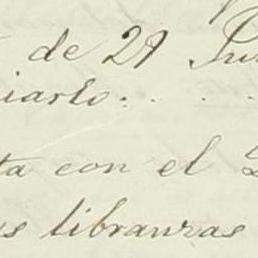 de 29
iarlo:
ta con el
us libranzas